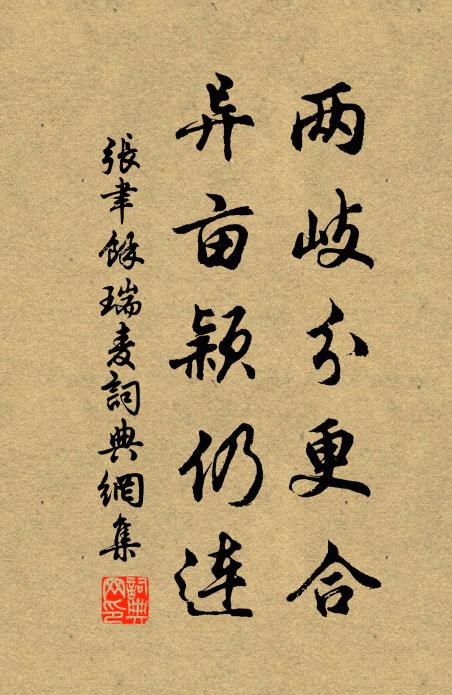 两岐分更合
异亩颖仍连
張聿餘瑞麦詞典網集
詞典网印